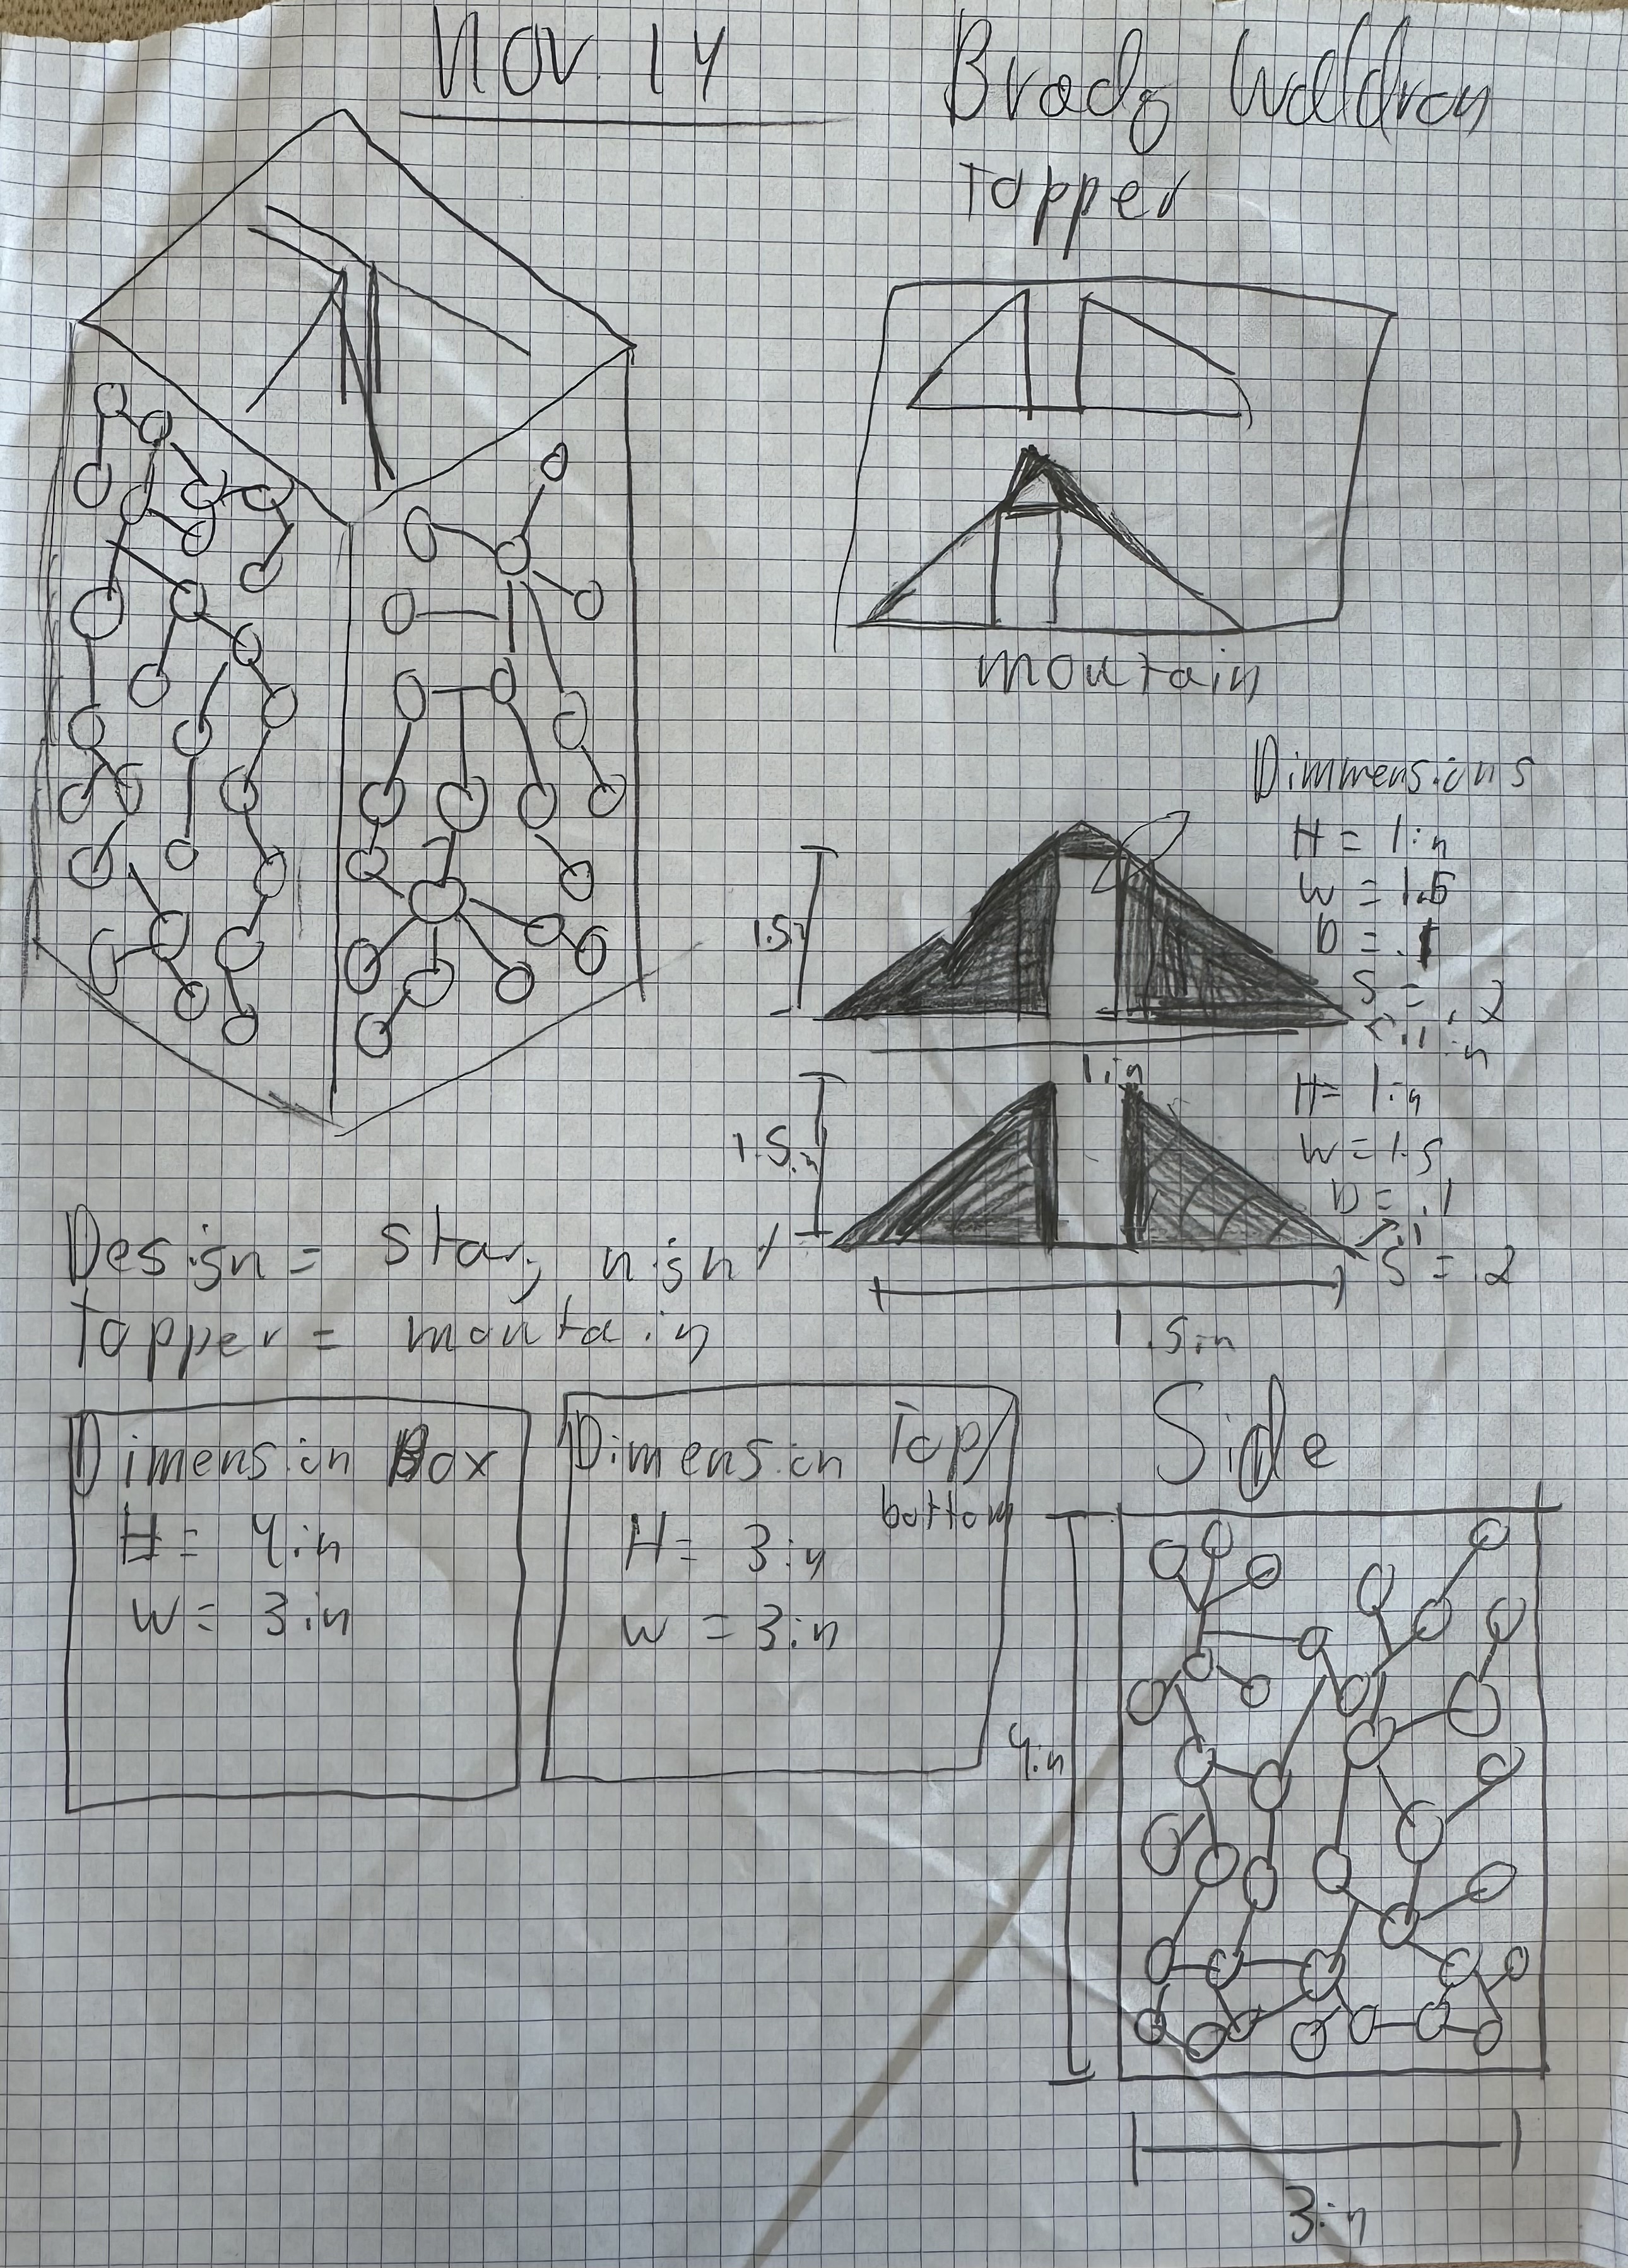 Nov. 14
Brady Waldron
Topper
moutain
Dimmensions
H = 1in
W = 1.5
D = .1
S = .2
.1in
1.5in
1in
H = 1in
W = 1.5
D = .1
.1
S = .2
1.5in
1.5in
Design = stary night
topper = moutain
Dimension Box
H = 4in
W = 3in
Dimension Top/
bottom
H = 3in
W = 3in
Side
4in
3in